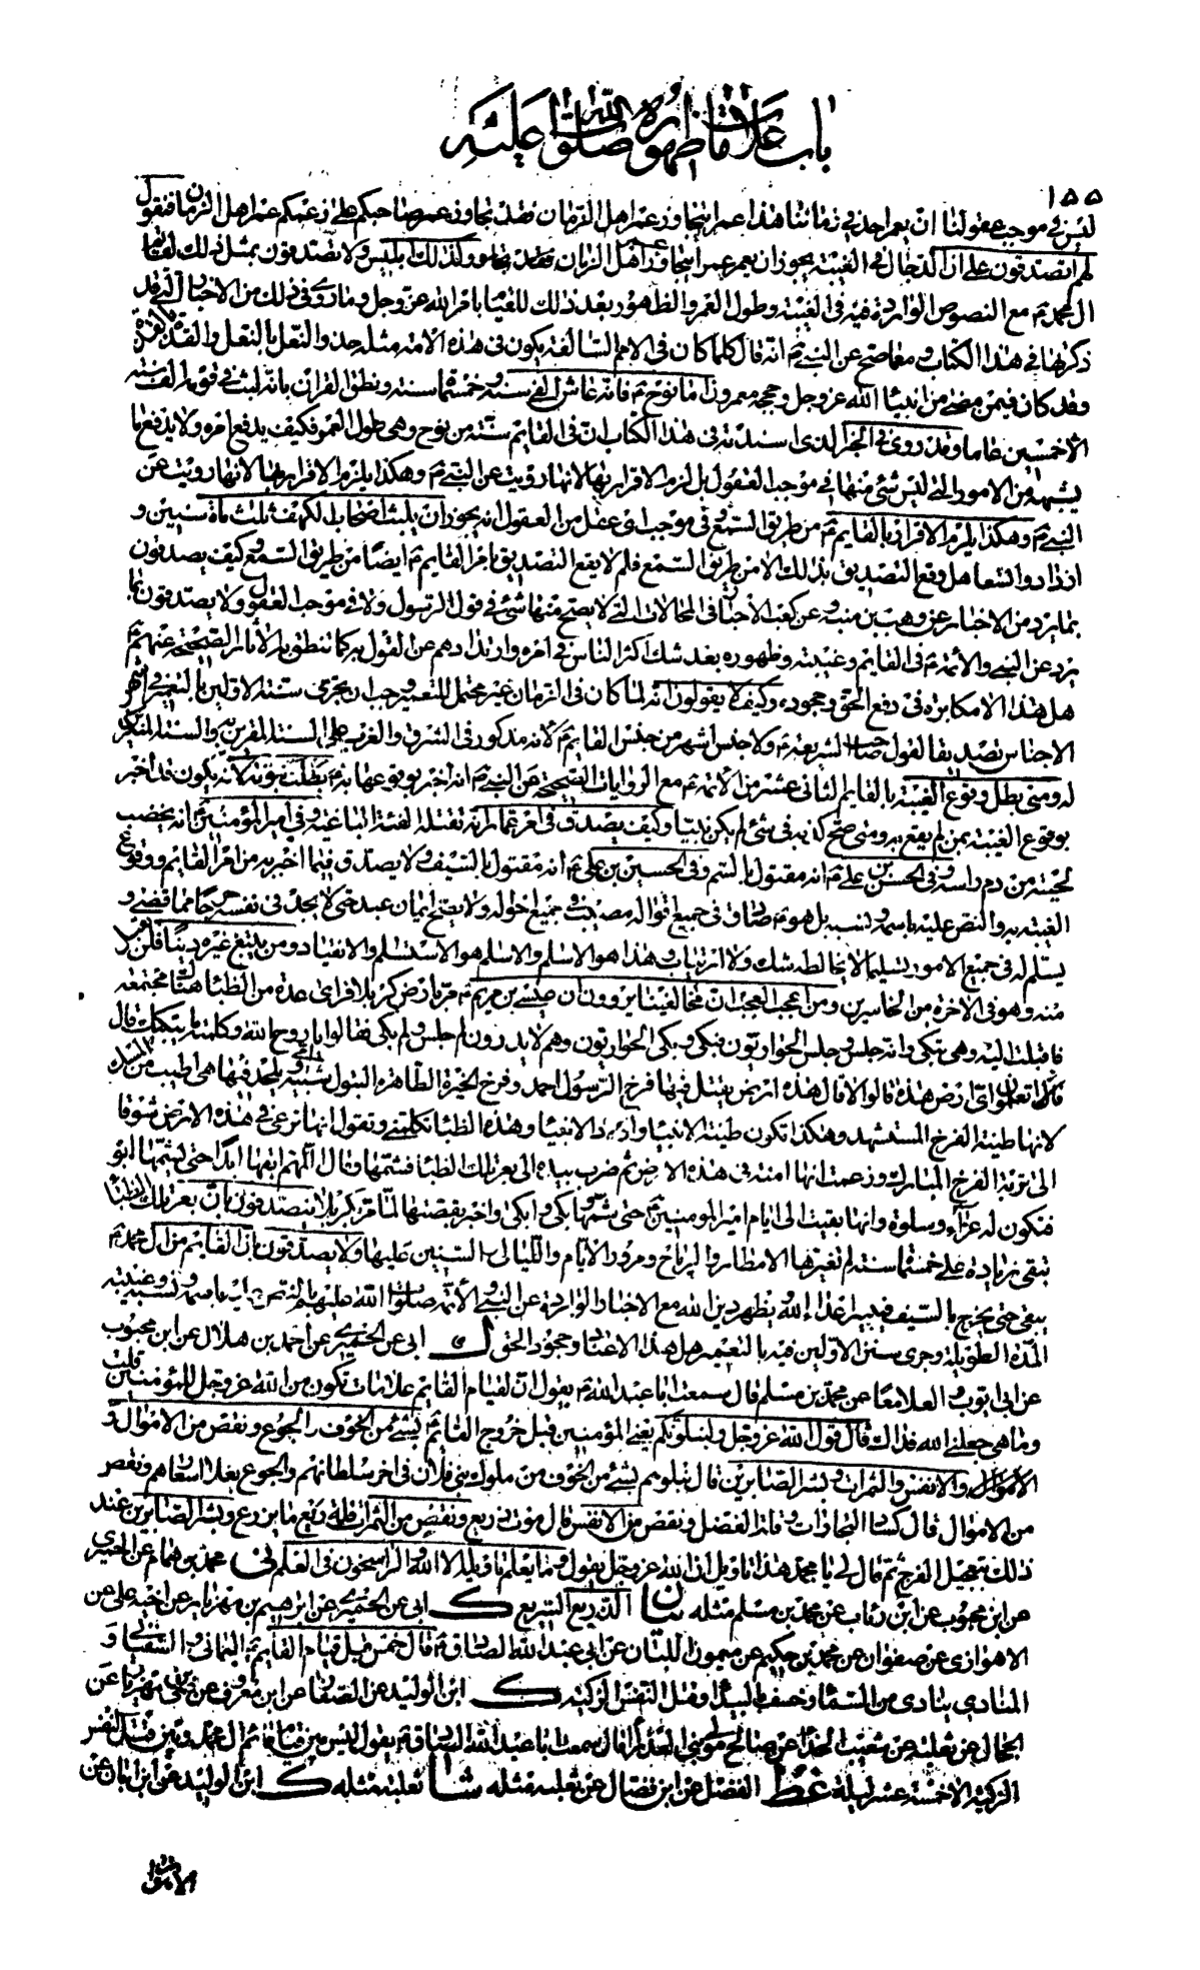 باب علامات ظهوره صلوات الله عليه
١٥٥
ليس في موجب عقولنا ان يعمر احد في زماننا هذا عمرا يتجاوز عمر اهل الزمان فقد تجاوز عمر صاحبكم على زعمكم عمر اهل الزمان فنقول
لهم اتصدقون على ان الدجال في الغيبة يجوز ان يعمر عمرا يتجاوز عمر اهل الزمان وكذلك ابليس ولا تصدقون بمثل ذلك لقائم
ال محمد ع مع النصوص الواردة فيه في الغيبة وطول العمر والظهور بعد ذلك للقيام بامر الله عز وجل وما روي في ذلك من الاخبار التي قد
ذكرتها في هذا الكتاب ومع ما صح عن النبي ص انه قال كلما كان في الامم السالفة يكون في هذه الامة مثله حذو النعل بالنعل والقذة بالقذة
وقد كان فيمن مضى من انبياء الله عز وجل وحججه معمرون اما نوح ع فانه عاش الفي سنة وخمسمائة سنة ونطق القران بانه لبث في قومه الف سنة
الا خمسين عاما وقد روي في الخبر الذي اسندته في هذا الكتاب ان في القايم سنة من نوح وهي طول العمر فكيف يدفع امره ولا يدفع ما
يشبهه من الامور التي ليس شئ منها في موجب العقول بل لزم الاقرار بها لانها رويت عن النبي ص وهكذا يلزم الاقرار بها لانها رويت عن
النبي ص وهكذا يلزم الاقرار بالقايم ع من طريق السمع وفي موجب اي عقل من العقول انه يجوز ان يلبث اصحاب الكهف ثلث مائة سنين و
ازدادوا تسعا هل وقع التصديق بذلك الا من طريق السمع فلم لا يقع التصديق بامر القايم ع ايضا من طريق السمع وكيف يصدقون
بما يرد من الاخبار عن وهب بن منبه وعن كعب الاحبار في المحالات التي لا يصح منها شئ في قول الرسول ولا في موجب العقول ولا يصدقون بما
يرد عن النبي والائمة ع في القايم وغيبته وظهوره بعد شك اكثر الناس في امره وارتدادهم عن القول به كما تنطق به الاثار الصحيحة عنهم ع
هل هذا الا مكابرة في دفع الحق وجحوده وكيف لا يقولون انه لما كان في الزمان غير محتمل للتعمير وجب ان يجري سنة الاولين بالتعمير في اشهر
الاجناس تصديقا لقول صاحب الشريعة ع ولا جنس اشهر من جنس القايم ع لانه مذكور في الشرق والغرب على السنة المقرين والسنة المنكرين
له ومتى بطل وقوع الغيبة بالقايم الثاني عشر من الائمة ع مع الروايات الصحيحة عن النبي ص انه اخبر بوقوعها به ع بطلت نبوته لانه يكون قد اخبر
بوقوع الغيبة بمن لم يقع به ومتى صح كذبه في شئ لم يكن نبيا وكيف يصدق في امر عمار انه تقتله الفئة الباغية وفي امير المؤمنين ع انه يخضب
لحيته من دم راسه وفي الحسن بن علي ع انه مقتول بالسم وفي الحسين بن علي ع انه مقتول بالسيف ولا يصدق فيما اخبر به من امر القايم ووقوع
الغيبة به والنص عليه باسمه ونسبه بل هو ع صادق في جميع اقواله مصيب في جميع احواله ولا يصح ايمان عبد حتى لا يجد في نفسه حرجا مما قضى و
يسلم له في جميع الامور تسليما لا يخالطه شك ولا ارتياب وهذا هو الاسلام والاسلام هو الاستسلام والانقياد ومن يبتغ غير الاسلام دينا فلن يقبل
منه وهو في الاخرة من الخاسرين ومن اعجب العجب ان مخالفينا يروون ان عيسى بن مريم ع مر بارض كربلا فراى عدة من الظباء هناك مجتمعة
فاقبلت اليه وهي تبكي وانه جلس وجلس الحواريون فبكى وبكى الحواريون وهم لا يدرون لم جلس ولم بكى فقالوا يا روح الله وكلمته ما يبكيك قال
اتعلمون اي ارض هذه قالوا لا قال هذه ارض يقتل فيها فرخ الرسول احمد وفرخ الخيرة الطاهرة البتول شبيهة امي ويلحد فيها هي اطيب من المسك
لانها طينة الفرخ المستشهد وهكذا تكون طينة الانبياء واولاد الانبياء وهذه الظباء تكلمني وتقول انها ترعى في هذه الارض شوقا
الى تربة الفرخ المبارك وزعمت انها امنة في هذه الارض ثم ضرب بيده الى بعر تلك الظباء فشمها فقال اللهم ابقها ابدا حتى يشمها ابو
فتكون له عزاء وسلوة وانها بقيت الى ايام امير المؤمنين ع حتى شمها وبكى وابكى واخبر بقصتها لما مر بكربلا فيصدقون بان بعر تلك الظباء
تبقى زيادة على خمسمائة سنة لم تغيرها الامطار والرياح ومرور الايام والليالي والسنين عليها ولا يصدقون بان القايم من ال محمد ع
يبقى حتى يخرج بالسيف فيبير اعداء الله ويظهر دين الله مع الاخبار الواردة عن النبي والائمة صلوات الله عليهم بالنص عليه باسمه ونسبه وغيبته
المدة الطويلة وجري سنن الاولين فيه بالتعمير هل هذا الا عناد وجحود الحق ك ابي عن الحميري عن احمد بن هلال عن ابن محبوب
عن ابي ايوب والعلا معا عن محمد بن مسلم قال سمعت ابا عبد الله ع يقول ان لقيام القايم علامات تكون من الله عز وجل للمؤمنين قلت
وما هي جعلني الله فداك قال قول الله عز وجل ولنبلونكم يعني المؤمنين قبل خروج القايم ع بشئ من الخوف والجوع ونقص من الاموال و
الاموال والانفس والثمرات وبشر الصابرين قال نبلوهم بشئ من الخوف من ملوك بني فلان في اخر سلطانهم والجوع بغلاء اسعارهم ونقص
من الاموال قال كساد التجارات وقلة الفضل ونقص من الانفس قال موت ذريع ونقص من الثمرات قلة ريع ما يزرع وبشر الصابرين عند
ذلك بتعجيل الفرج ثم قال لي يا محمد هذا تاويله ان الله عز وجل يقول وما يعلم تاويله الا الله والراسخون في العلم نى محمد بن همام عن الحميري
عن ابن محبوب عن ابن رئاب عن محمد بن مسلم مثله بيان الذريع السريع ك ابي عن الحميري عن ابرهيم بن مهزيار عن اخيه علي عن
الاهوازي عن صفوان عن محمد بن حكيم عن ميمون البان عن ابي عبد الله الصادق ع قال خمس قبل قيام القايم ع اليماني والسفياني و
المنادي ينادي من السماء وخسف بالبيداء وقتل النفس الزكية ك ابن الوليد عن الصفار عن ابن معروف عن علي بن مهزيار عن
الحجال عن ثعلبة عن شعيب الحذاء عن صالح مولى بني العذراء قال سمعت ابا عبد الله الصادق ع يقول ليس بين قيام قائم ال محمد وبين قتل النفس
الزكية الا خمسة عشر ليلة غط الفضل عن ابن فضال عن ثعلبة مثله شا ثعلبة مثله ك ابن الوليد عن ابن ابان عن
الاهوازي